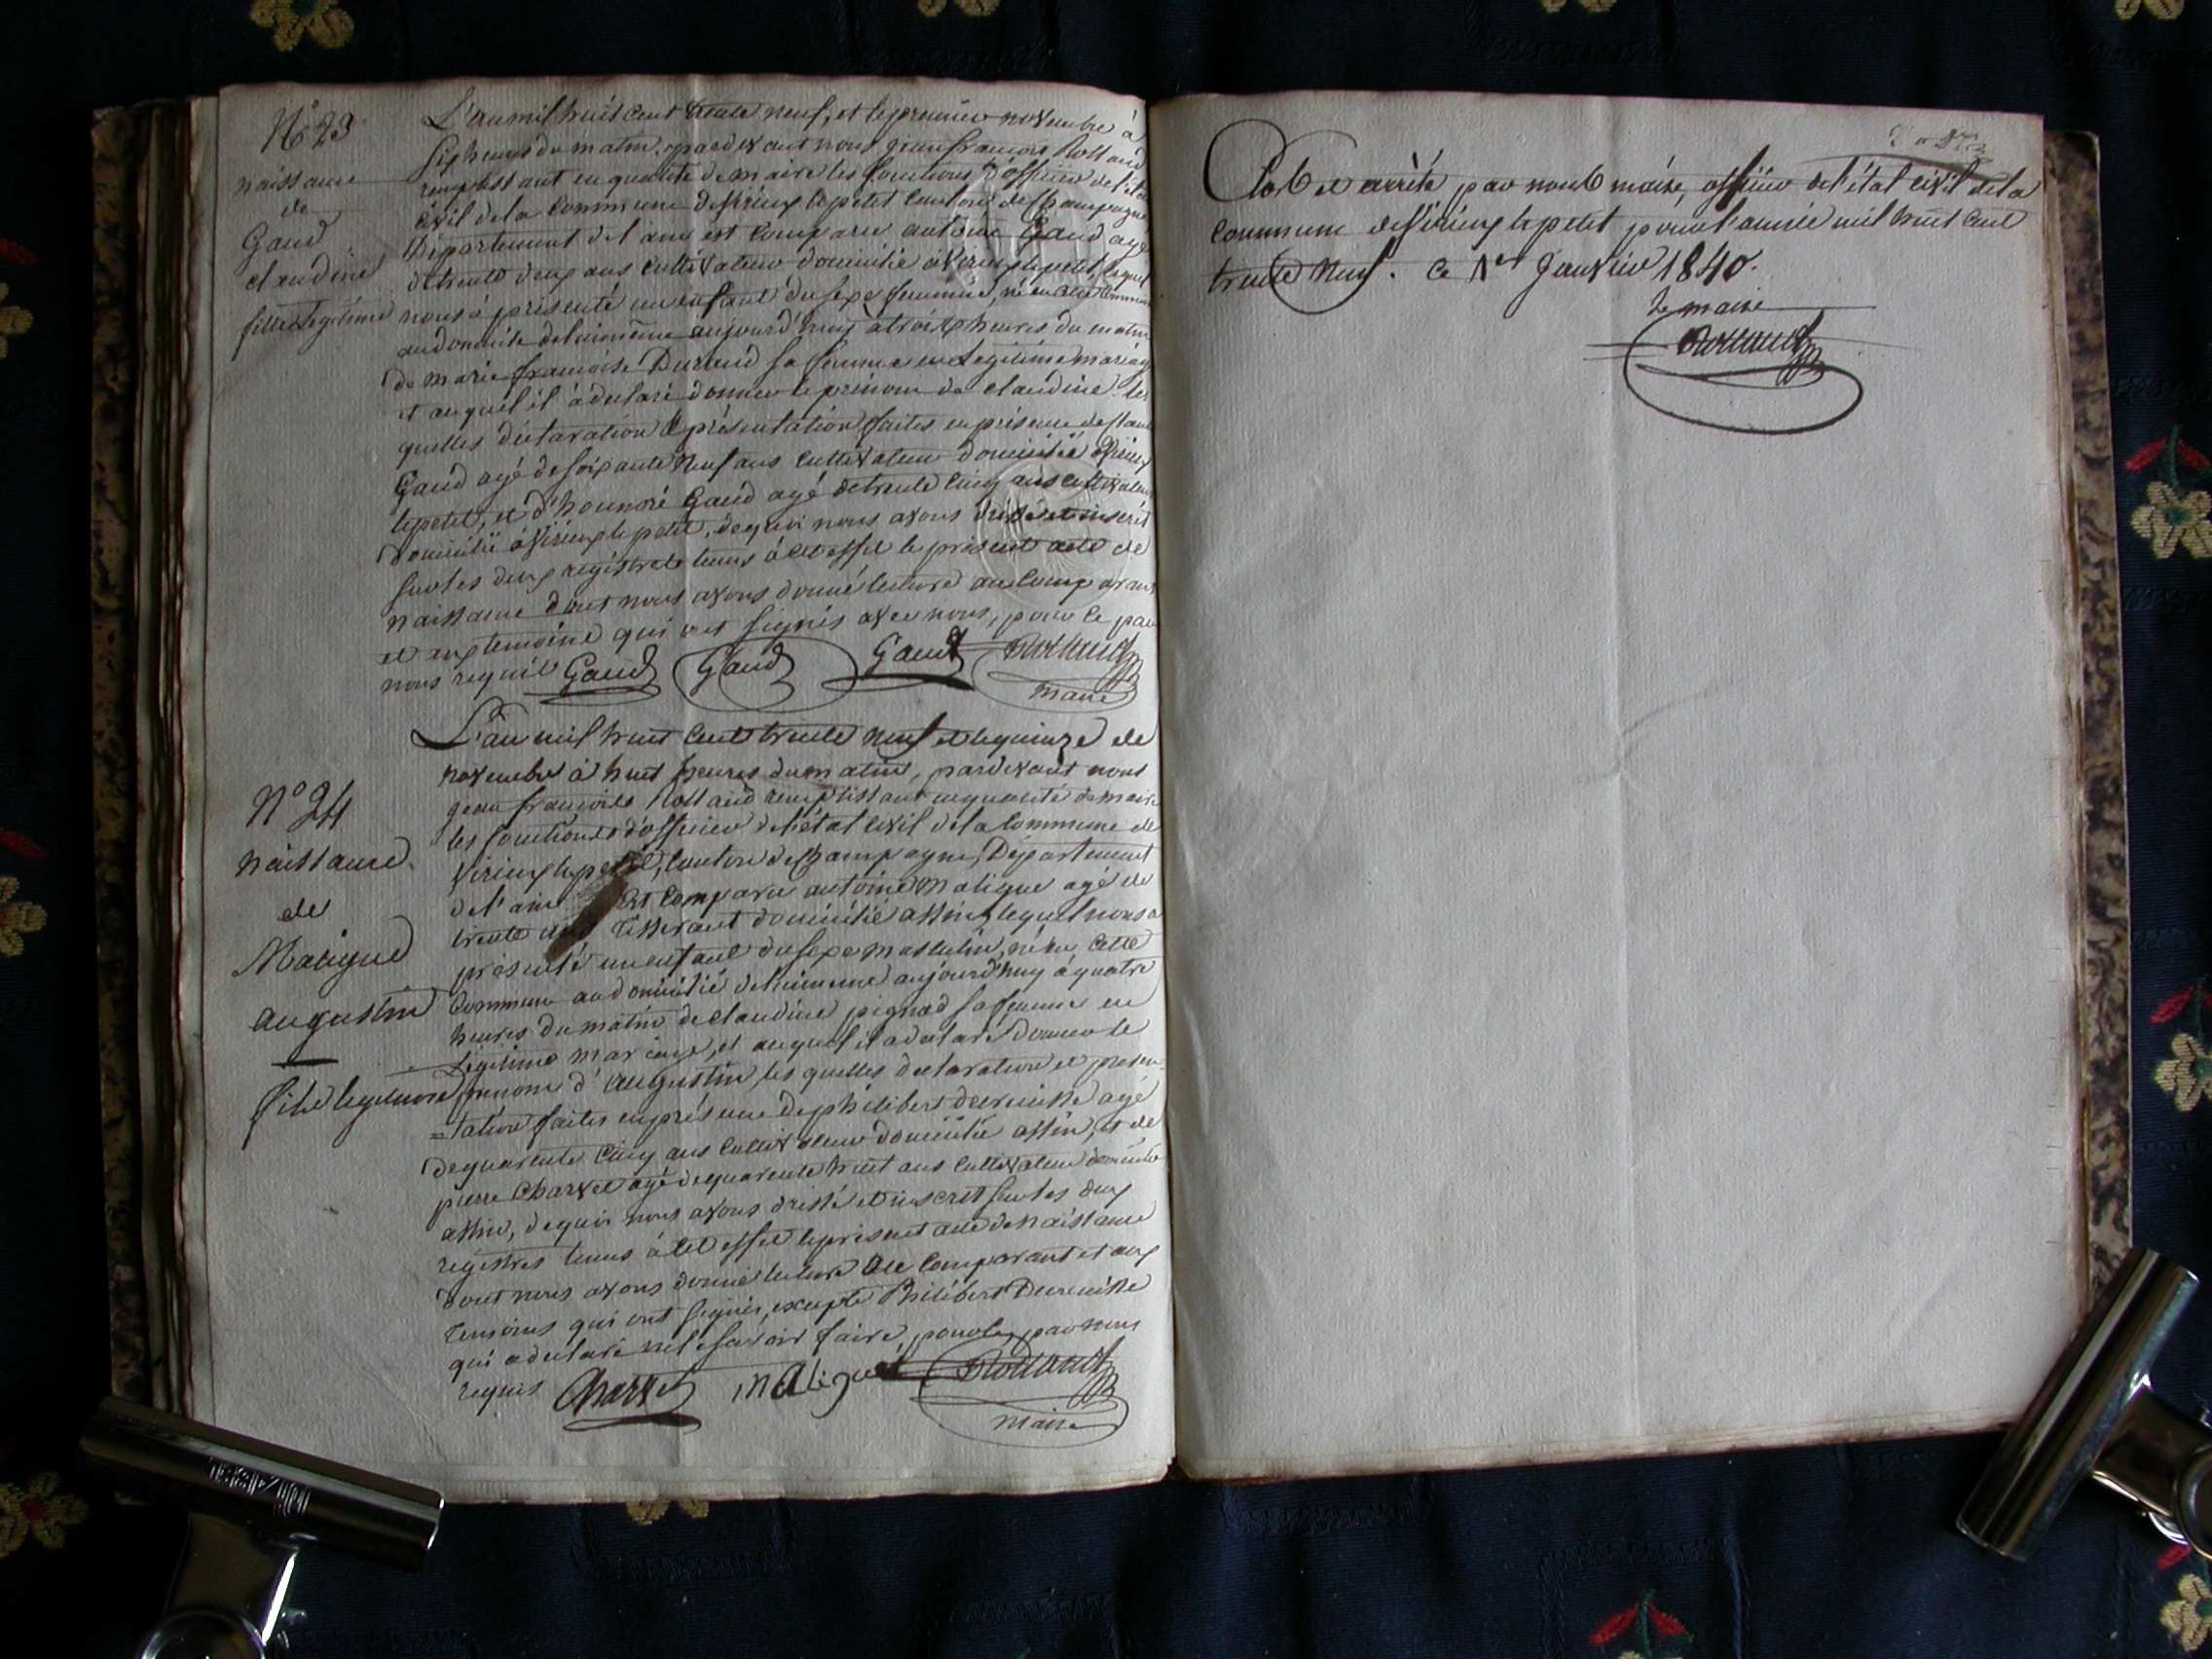 N° 23
naissance
de
Gaud
claudine
fille legitime
L'an mil huit cent trente neuf, et le premier novembre à
six heures du matin, pardevant nous jean francois Rolland
remplissant en qualité de maire les fonctions d'officier de l'état
civil de la Commune de Virieux le petit Canton de Champagne
Département de l'ain est Comparu antoine Gaud agé
de trente deux ans Cultivateur domicilié à Virieux le petit, lequel
nous à présenté un enfant du sexe feminin, né en cette Commune
au domicile de luimême aujourd'huy à trois heures du matin
de marie francoise Durand sa femme en Legitime mariage
et auquel il à declaré donner le prénom de claudine les
quelles déclaration & présentation faites en présence de
Gaud agé de soixante neuf ans Cultivateur domicilié à Virieux
le petit, et d'honnoré Gaud agé de trente cinq ans cultivateur
domicilié à Virieux le petit, de quoi nous avons dressé et inscrit
sur les deux registres tenus à cet effet le présent acte de
naissance dont nous avons donné lecture au Comparant
et aux temoins qui ont signés avec nous, pour ce par
nous requis Gaud Gaud Gaud Rolland
maire
N° 24
naissance
de
Maligue
augustin
fils legitime
L'an mil huit Cent trente neuf et le quinze de
novembre à huit heures du matin, pardevant nous
jean francois Rolland remplissant en qualité de maire
les fonctions d'officier de l'état civil de la Commune de
Virieux le petit, Canton de Champagne, Département
de l'ain Est Comparu antoine Maligue agé de
trente Tisserant domicilié assin, lequel nous a
présenté un enfant du sexe masculin, né en Cette
Commune au domicilié de luimeme aujourd'huy à quatre
heures du matin de claudine pignad sa femme en
Legitime mariage, et auquel il a declaré donner le
prenom d'augustin les quelles declaration et presen
=tation faites en présence de philibert agé
de quarente Cinq ans Cultivateur domicilié assin, et de
pierre Charvet agé de quarente huit ans Cultivateur domicilié
assin, de quoi nous avons dressé et inscrit sur les deux
registres tenus à Cet effet le present acte de naissance
dont nous avons donné lecture au Comparant et aux
temoins qui ont signés, excepté Philibert
qui a declaré ne le savoir faire, pour ce par nous
requis Charvet maligue Rolland
maire
Clos et arrêté par nous maire, officier de l'état civil de la
Commune de Virieux le petit pour l'année mil huit Cent
trente Neuf. Ce 1er Janvier 1840.
Le maire
Rolland